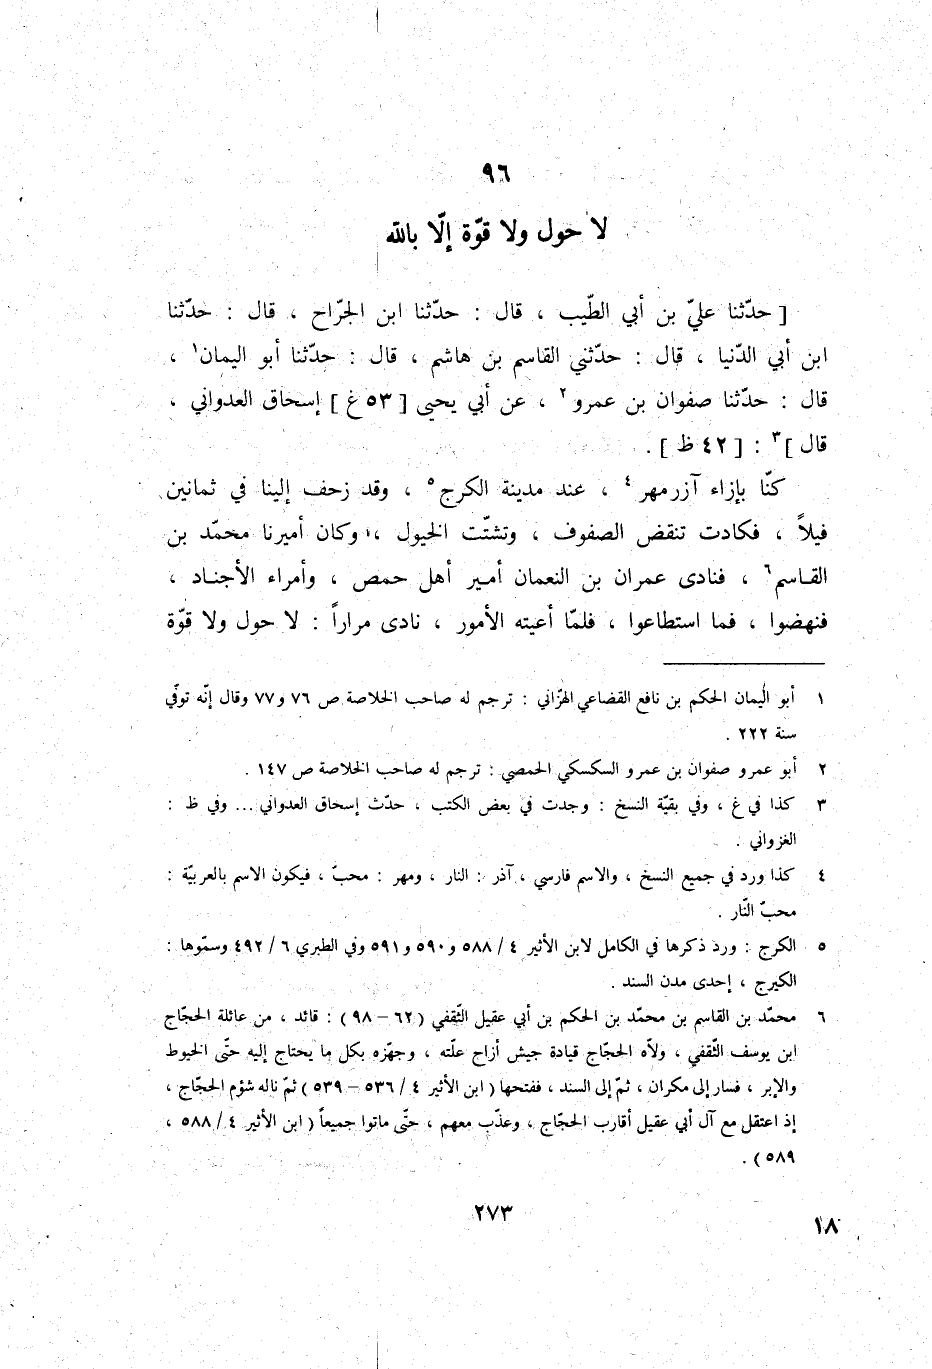 ٩٦
لا حول ولا قوّة إلّا بالله
[ حدّثنا عليّ بن أبي الطّيب ، قال : حدّثنا ابن الجرّاح ، قال : حدّثنا
ابن أبي الدّنيا ، قال : حدّثني القاسم بن هاشم ، قال : حدّثنا أبو اليمان١ ،
قال : حدّثنا صفوان بن عمرو٢ ، عن أبي يحيى [ ٥٣ غ ] إسحاق العدواني ،
قال ]٣ : [ ٤٢ ظ ] .
كنّا بإزاء آزرمهر٤ ، عند مدينة الكرج٥ ، وقد زحف إلينا في ثمانين
فيلاً ، فكادت تنقض الصفوف ، وتشتّت الخيول ، وكان أميرنا محمّد بن
القاسم٦ ، فنادى عمران بن النعمان أمير أهل حمص ، وأمراء الأجناد ،
فنهضوا ، فما استطاعوا ، فلمّا أعيته الأمور ، نادى مراراً : لا حول ولا قوّة
١ أبو اليمان الحكم بن نافع القضاعي الهرّاني : ترجم له صاحب الخلاصة ص ٧٦ و٧٧ وقال إنّه توفّي
سنة ٢٢٢ .
٢ أبو عمرو صفوان بن عمرو السكسكي الحمصي : ترجم له صاحب الخلاصة ص ١٤٧ .
٣ كذا في غ ، وفي بقيّة النسخ : وجدت في بعض الكتب ، حدّث إسحاق العدواني ... وفي ظ :
الغزواني .
٤ كذا ورد في جميع النسخ ، والاسم فارسي ، آذر : النار ، ومهر : محبّ ، فيكون الاسم بالعربيّة :
محبّ النّار .
٥ الكرج : ورد ذكرها في الكامل لابن الأثير ٤ / ٥٨٨ و٥٩٠ و٥٩١ وفي الطبري ٦ / ٤٩٢ وسمّوها :
الكيرج ، إحدى مدن السند .
٦ محمّد بن القاسم بن محمّد بن الحكم بن أبي عقيل الثّقفي ( ٦٢ – ٩٨ ) : قائد ، من عائلة الحجّاج
ابن يوسف الثّقفي ، ولاّه الحجّاج قيادة جيش أزاح علّته ، وجهّزه بكل ما يحتاج إليه حتّى الخيوط
والإبر ، فسار إلى مكران ، ثمّ إلى السند ، ففتحها ( ابن الأثير ٤ / ٥٣٦ – ٥٣٩ ) ثمّ ناله شؤم الحجّاج ،
إذ اعتقل مع آل أبي عقيل أقارب الحجّاج ، وعذّب معهم ، حتّى ماتوا جميعاً ( ابن الأثير ٤ / ٥٨٨ ،
٥٨٩ ) .
٢٧٣
١٨